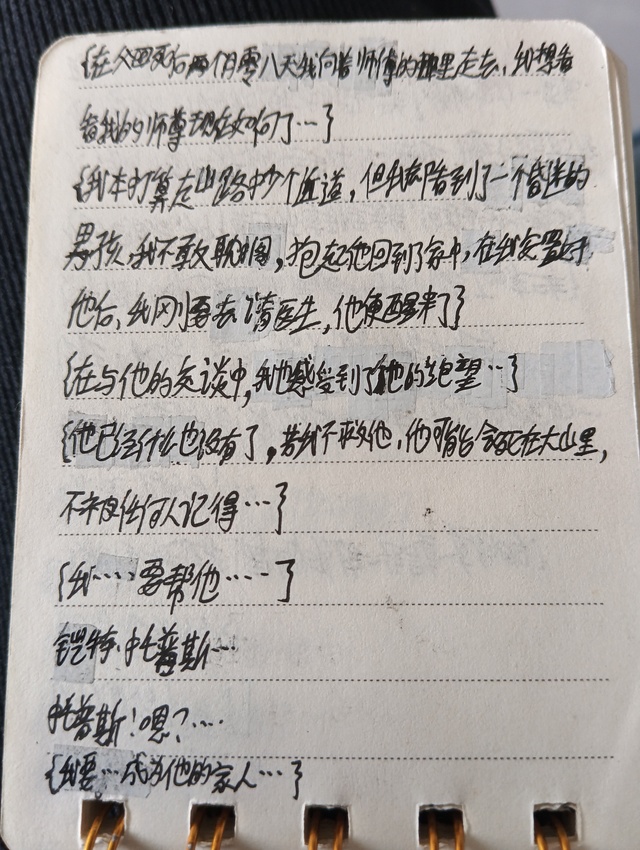 {在父母死后两个月零八天我向着师傅的那里走去，我想看
看我的师尊现在如何了…}
{我本打算走山路中少个近道，但我却看到了一个昏迷的
男孩，我不敢耽搁，抱起他回到了家中，在我安置好
他后，我刚要去请医生，他便醒来了}
{在与他的交谈中，我也感受到了他的绝望…}
{他已经什么也没有了，若我不救他，他可能会死在大山里，
不被任何人记得…}
{我……要帮他……}
铠特·托普斯…
托普斯！嗯？…
{我要…成为他的家人…}